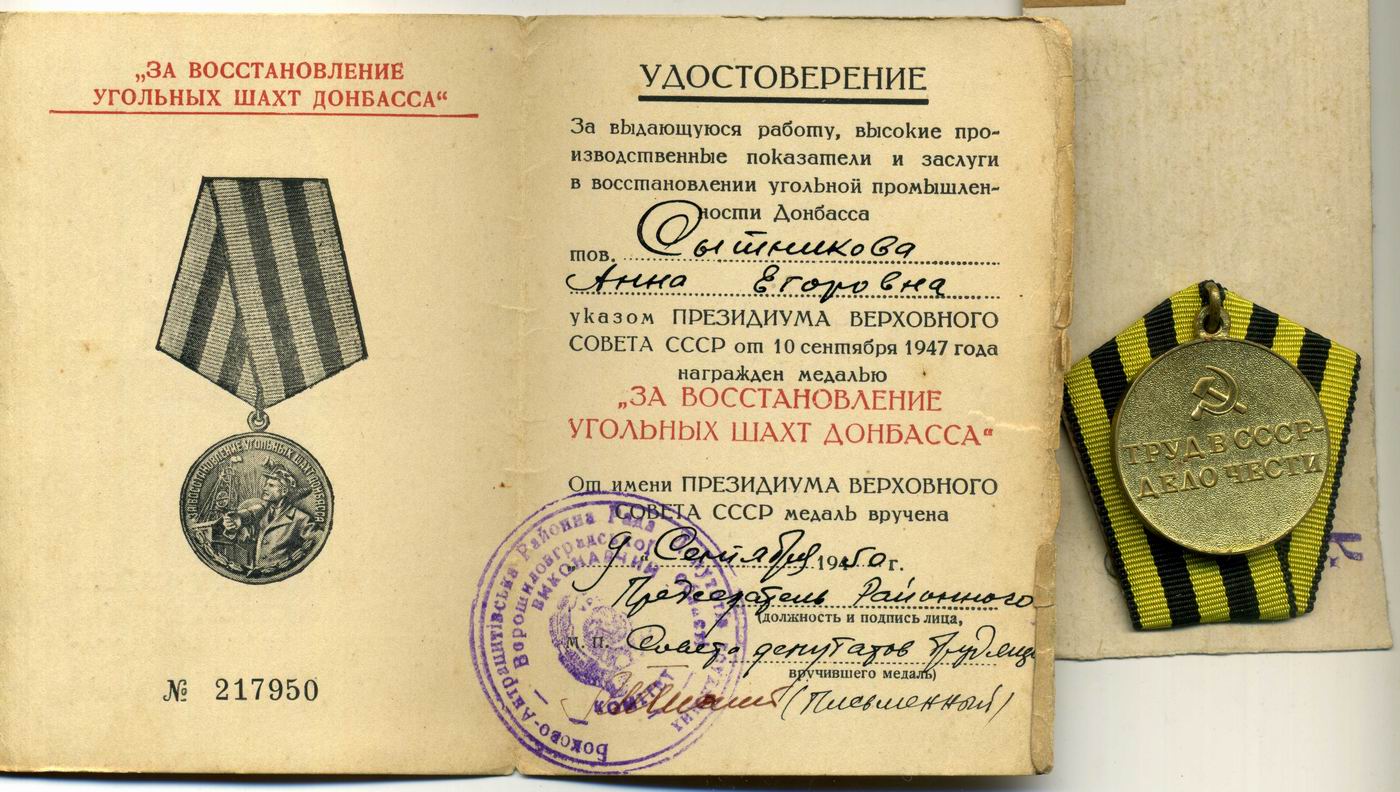 „ЗА ВОССТАНОВЛЕНИЕ
УГОЛЬНЫХ ШАХТ ДОНБАССА“
ЗА ВОССТАНОВЛЕНИЕ УГОЛЬНЫХ ШАХТ ДОНБАССА
№ 217950
УДОСТОВЕРЕНИЕ
За выдающуюся работу, высокие про-
изводственные показатели и заслуги
в восстановлении угольной промышлен-
ности Донбасса
тов. Сытникова
Анна Егоровна
указом ПРЕЗИДИУМА ВЕРХОВНОГО
СОВЕТА СССР от 10 сентября 1947 года
награжден медалью
„ЗА ВОССТАНОВЛЕНИЕ
УГОЛЬНЫХ ШАХТ ДОНБАССА“
От имени ПРЕЗИДИУМА ВЕРХОВНОГО
СОВЕТА СССР медаль вручена
„9“ Сентября 1950 г.
Председатель Районного
(должность и подпись лица,
М. П. Совета депутатов трудящ
вручившего медаль)
(Письменный)
Боково-Антрацитівська Районна Рада депутатів трудящих
Ворошиловградської області
ВИКОНАВЧИЙ
КОМІТЕТ
ТРУД В СССР-
ДЕЛО ЧЕСТИ